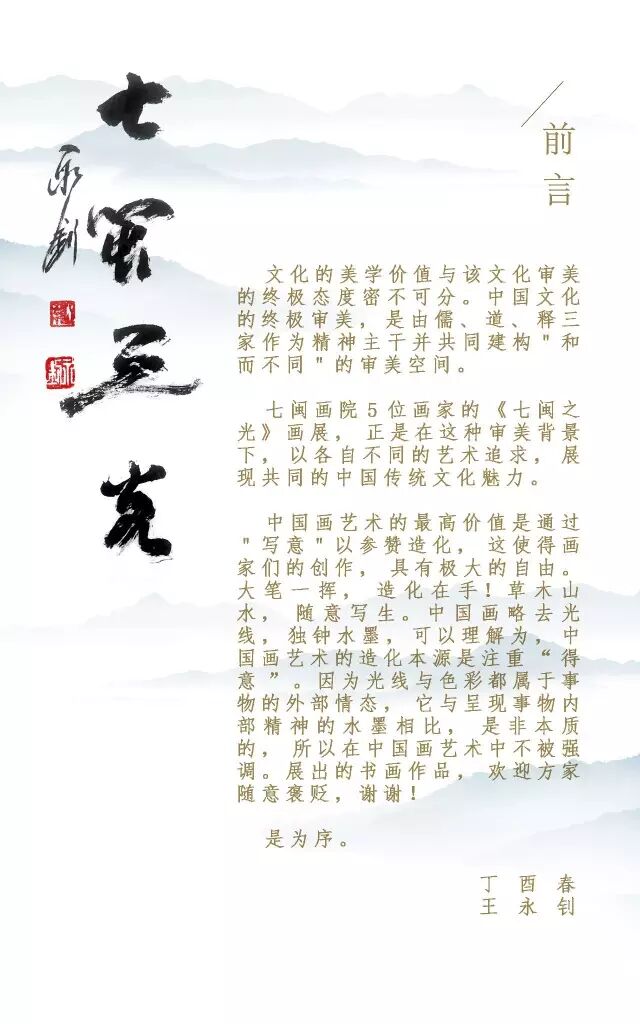 七闽之光
永钊
前言
文化的美学价值与该文化审美
的终极态度密不可分。中国文化
的终极审美，是由儒、道、释三
家作为精神主干并共同建构"和
而不同"的审美空间。
七闽画院5位画家的《七闽之
光》画展，正是在这种审美背景
下，以各自不同的艺术追求，展
现共同的中国传统文化魅力。
中国画艺术的最高价值是通过
"写意"以参赞造化，这使得画
家们的创作，具有极大的自由。
大笔一挥，造化在手！草木山
水，随意写生。中国画略去光
线，独钟水墨，可以理解为，中
国画艺术的造化本源是注重“得
意”。因为光线与色彩都属于事
物的外部情态，它与呈现事物内
部精神的水墨相比，是非本质
的，所以在中国画艺术中不被强
调。展出的书画作品，欢迎方家
随意褒贬，谢谢！
是为序。
丁酉春
王永钊